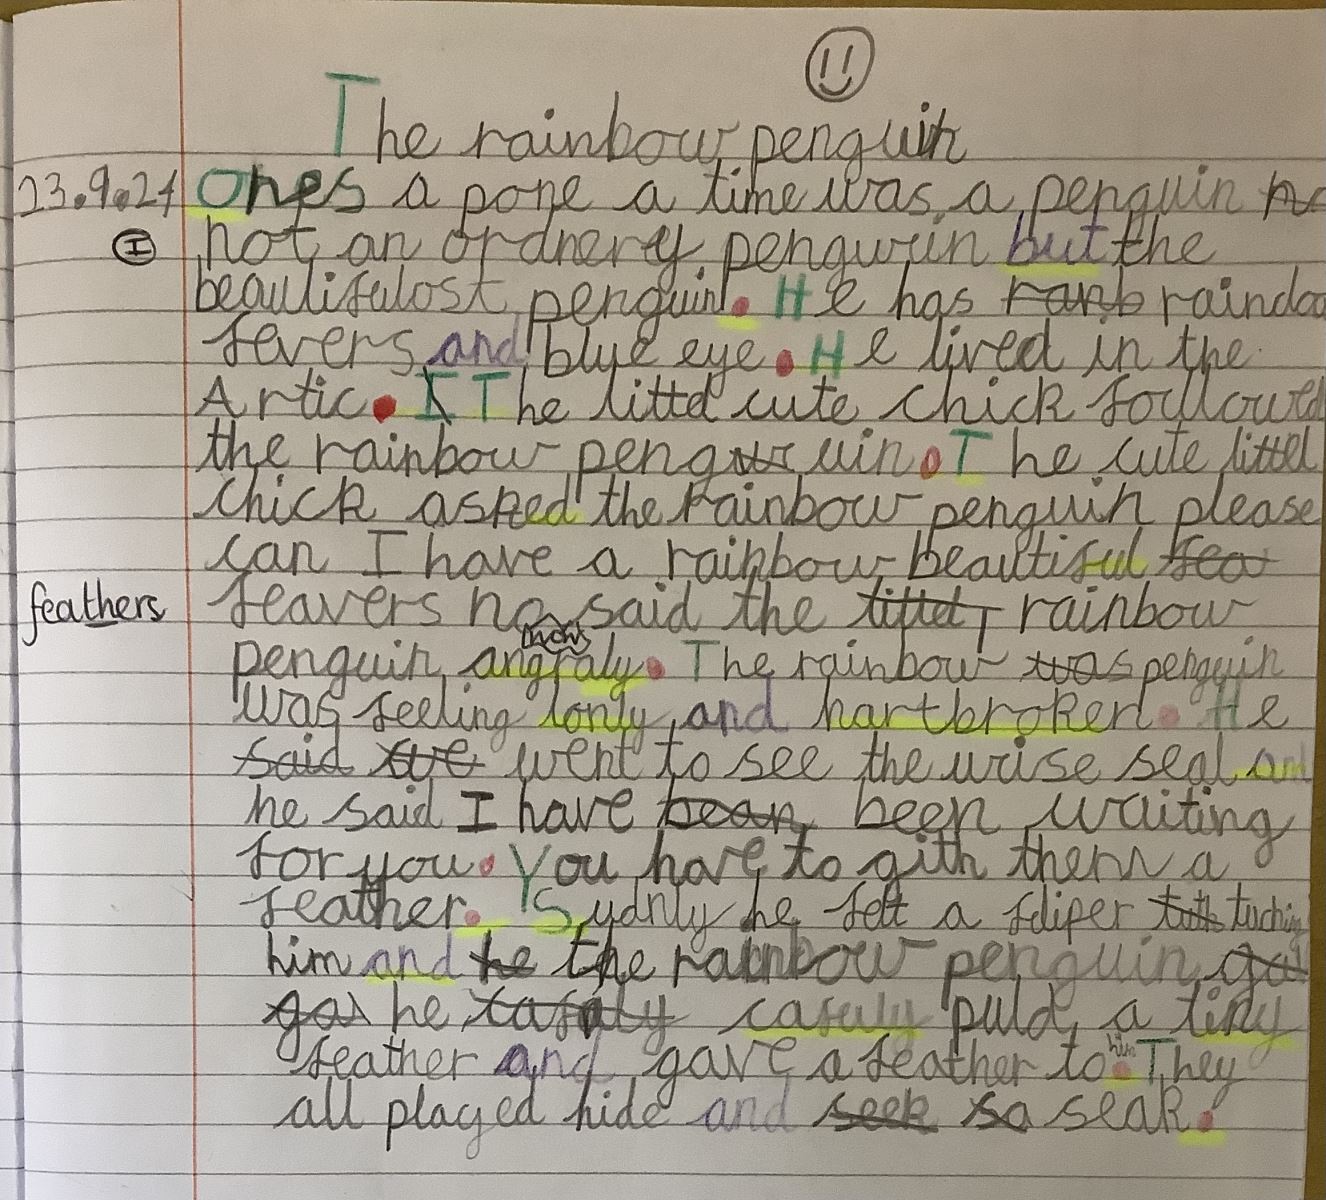 The rainbow penguin
23.9.24 Ones a pone a time was a penguin
I not an ordnerey penguin but the
beautifulost penguin. He has rainboo
fevers and blue eye. He lived in the
Artic. The littel cute chick follow
the rainbow penguin. The cute littel
chick asked the rainbow penguin please
can I have a rainbow beautiful
feathers feavers no said the rainbow
penguin angraly. The rainbow penguin
was feeling lonly and hartbroken. He
said went to see the wise seal and
he said I have been waiting
for you. You have to gith them a
feather. Sudnly he felt a fliper tuching
him and the rainbow penguin
he cafuly puld a tiny
feather and gave a feather to him. They
all played hide and seak.